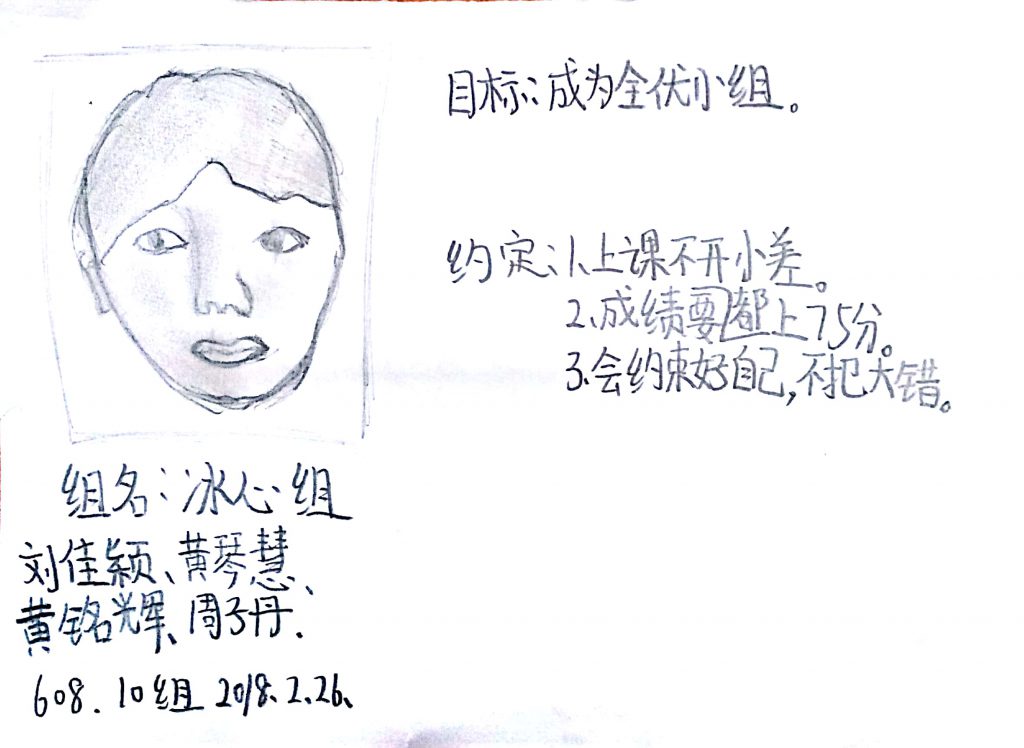 目标：成为全优小组。
约定：1、上课不开小差。
2、成绩要都上75分。
3、会约束好自己，不把大错。
组名：冰心组
刘佳颖、黄琴慧、
黄铭辉、周子丹.
608.10组 2018.2.26、